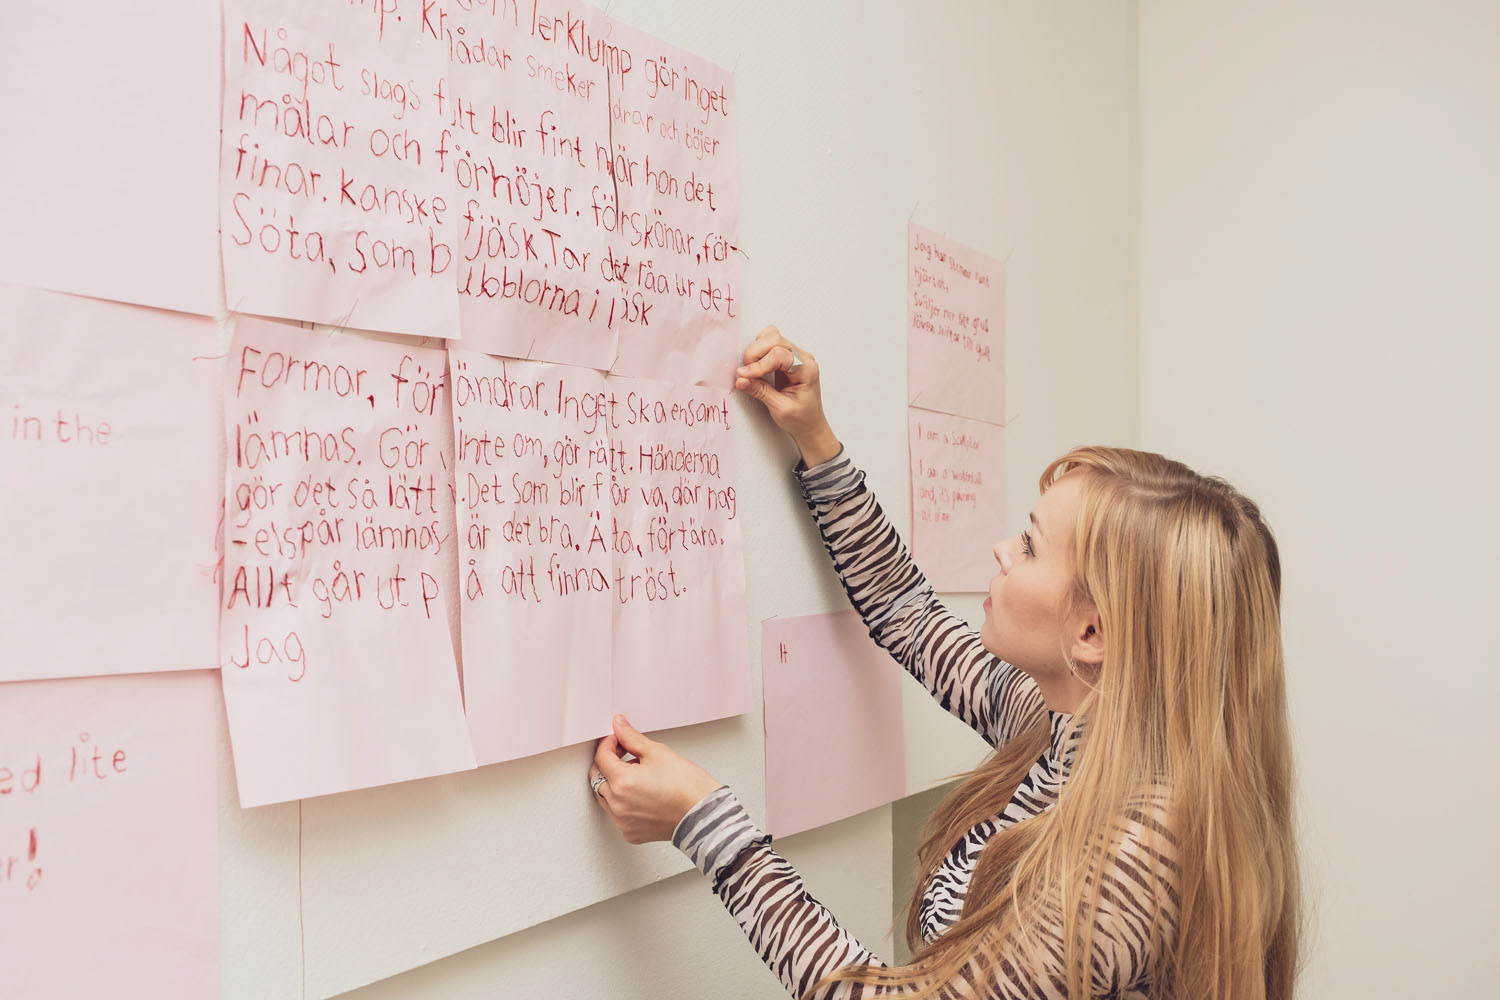 in the
ed lite
er!
mp. Knådar som lerklump gör inget
smeker drar och böjer
Något slags fult blir fint när hon det
målar och förhöjer. förskönar, för-
finar. kanske fjäsk. Tar det råa ur det
Söta, som bubblorna i läsk
Formar, förändrar. Inget ska ensamt
lämnas. Gör inte om, gör rätt. Händerna
gör det så lätt. Det som blir får va, där nag
-elspår lämnas är det bra. Äta, förtära.
Allt går ut på att finna tröst.
Jag
Jag har stenar runt
hjärtat.
Sväljer ner lite grus
I am a sculptor
I am a waterfall
and, it's pouring
out of me
It